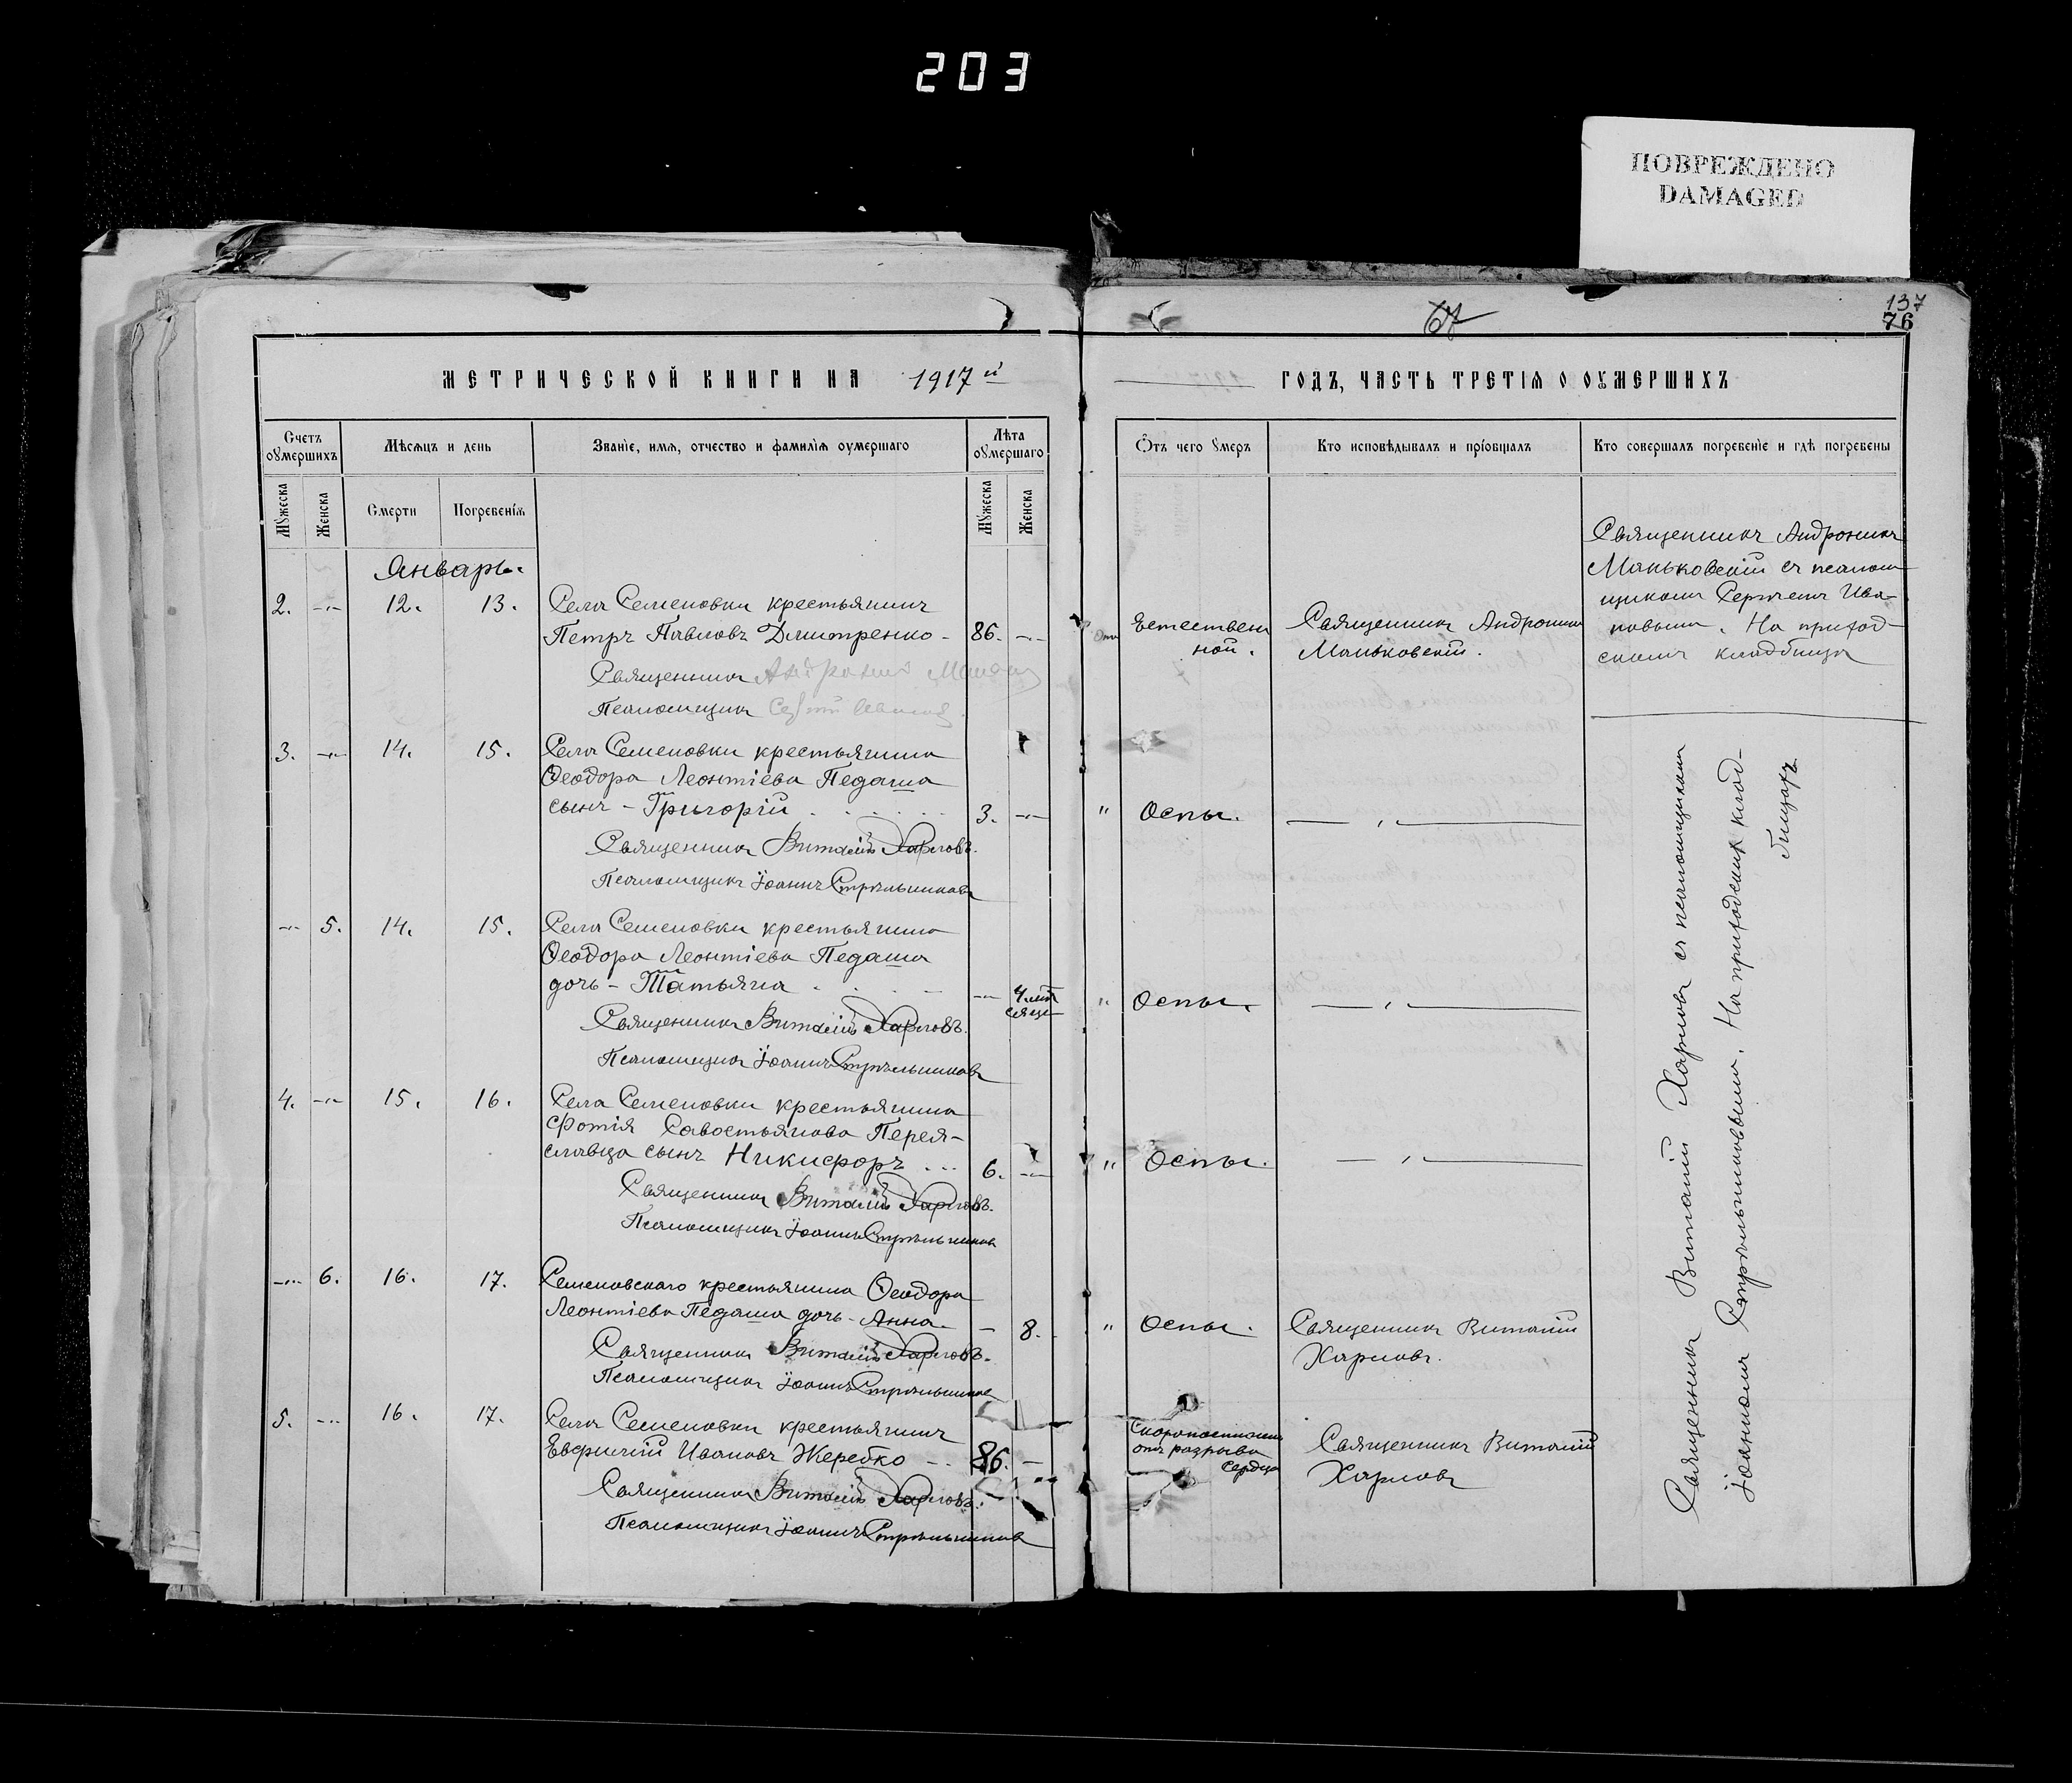 203
ПОВРЕЖДЕНО
DAMAGED
67
137
76
МЕТРИЧЕСКОЙ КНИГИ НА 1917й
ГОДЪ, ЧАСТЬ ТРЕТІЯ О ОУМЕРШИХЪ
Счетъ оумершихъ
Мѣсяцъ и день
Званіе, имя, отчество и фамилія оумершаго
Лѣта оумершаго
Отъ чего умеръ
Кто исповѣдывалъ и пріобщалъ
Кто совершалъ погребеніе и гдѣ погребены
Мужеска
Женска
Смерти
Погребенія
Мужеска
Женска
Январь.
2. -"- 12. 13.
Села Семеновки крестьянинъ
Петръ Павловъ Дмитренко - 86. -"-
Священникъ Андроникъ
Псаломщикъ
Отъ Естествен
ной.
Священникъ Андроникъ
Маньковскій.
Священникъ Андроникъ
Маньковскій съ псалом
щикомъ Сергіемъ Ива-
новымъ. На приход-
скомъ кладбищѣ
3. -"- 14. 15.
Села Семеновки крестьянина
Ѳеодора Леонтіева Педаша
сынъ - Григорій . . . . . 3. -"-
Священникъ Виталій Харловъ.
Псаломщикъ Іоаннъ Стрѣльниковъ
" Оспы. — " —
-"- 5. 14. 15.
Села Семеновки крестьянина
Ѳеодора Леонтіева Педаша
дочь - Татьяна . . . . -"- 4 мѣ
сяца
Священникъ Виталій Харловъ.
Псаломщикъ Іоаннъ Стрѣльниковъ
" Оспы. — " —
4. -"- 15. 16.
Села Семеновки крестьянина
Фотія Савостьянова Перея-
славца сынъ Никифоръ ... 6. -"-
Священникъ Виталій Харловъ.
Псаломщикъ Іоаннъ Стрѣльниковъ
" Оспы. — " —
-"- 6. 16. 17.
Семеновскаго крестьянина Ѳеодора
Леонтіева Педаша дочь - Анна. - 8.
Священникъ Виталій Харловъ.
Псаломщикъ Іоаннъ Стрѣльниковъ
" Оспы.
Священникъ Виталій
Харловъ.
5. -"- 16. 17.
Села Семеновки крестьянинъ
Евфимій Ивановъ Жеребко -- 86. -
Священникъ Виталій Харловъ.
Псаломщикъ Іоаннъ Стрѣльниковъ
Скоропостижно
отъ разрыва
сердца
Священникъ Виталій
Харловъ
Священникъ Виталій Харловъ съ псаломщикомъ
Іоанномъ Стрѣльниковымъ. На приходскихъ клад-
бищахъ